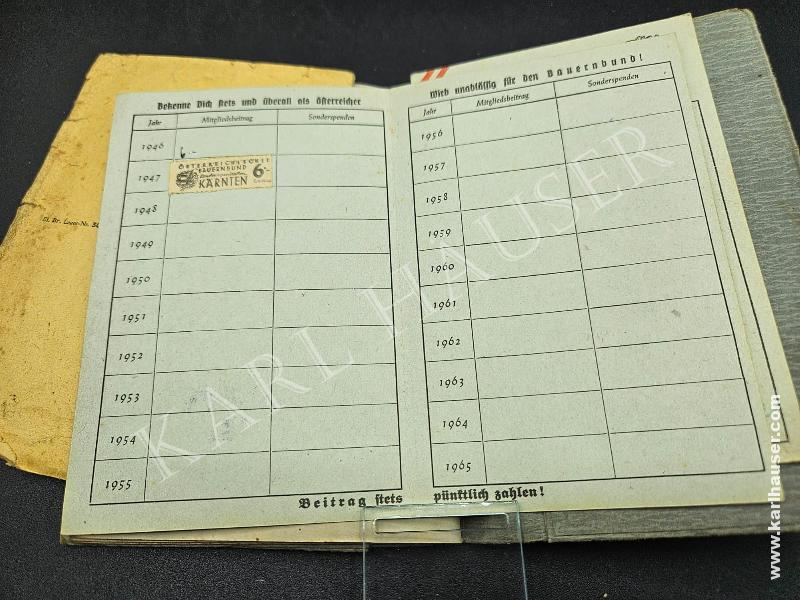 Bekenne Dich stets und überall als Österreicher
Jahr Mitgliedsbeitrag Sonderspenden
1946 6.-
1947
ÖSTERREICHISCHER
BAUERNBUND
KÄRNTEN
6.-
1948
1949
1950
1951
1952
1953
1954
1955
Beitrag stets
Wirb unablässig für den Bauernbund!
Jahr Mitgliedsbeitrag Sonderspenden
1956
1957
1958
1959
1960
1961
1962
1963
1964
1965
pünktlich zahlen!
KARL HAUSER
www.karlhauser.com